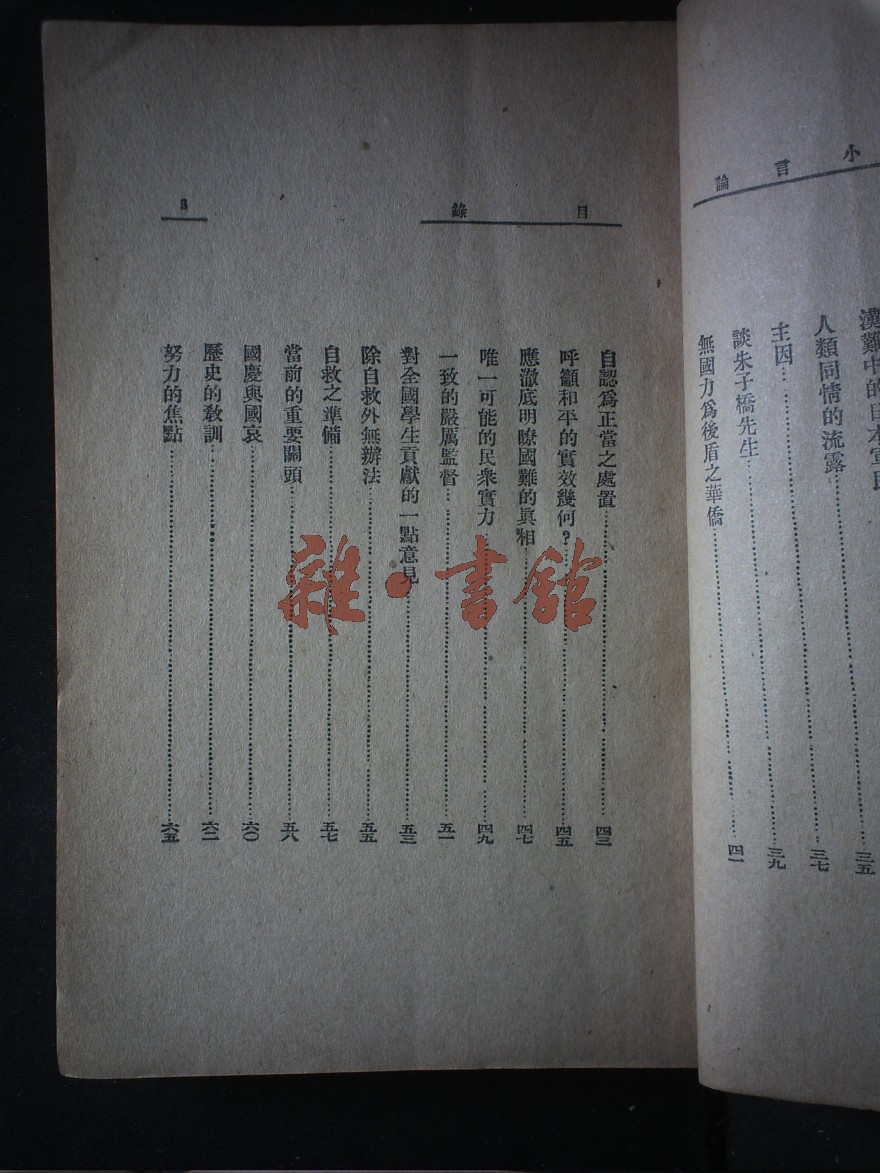 小言論
難中的日本軍
人類同情的流露……三五
主因……三七
談朱子橋先生……三九
無國力為後盾之華僑……四一
目錄
自認為正當之處置……四三
呼籲和平的實效幾何？……四五
應澈底明瞭國難的眞相……四七
唯一可能的民衆實力……四九
一致的嚴厲監督……五一
對全國學生貢獻的一點意見……五三
除自救外無辦法……五五
自救之準備……五七
當前的重要關頭……五八
國慶與國哀……六〇
歷史的敎訓……六二
努力的焦點……六五
3
雜·書館